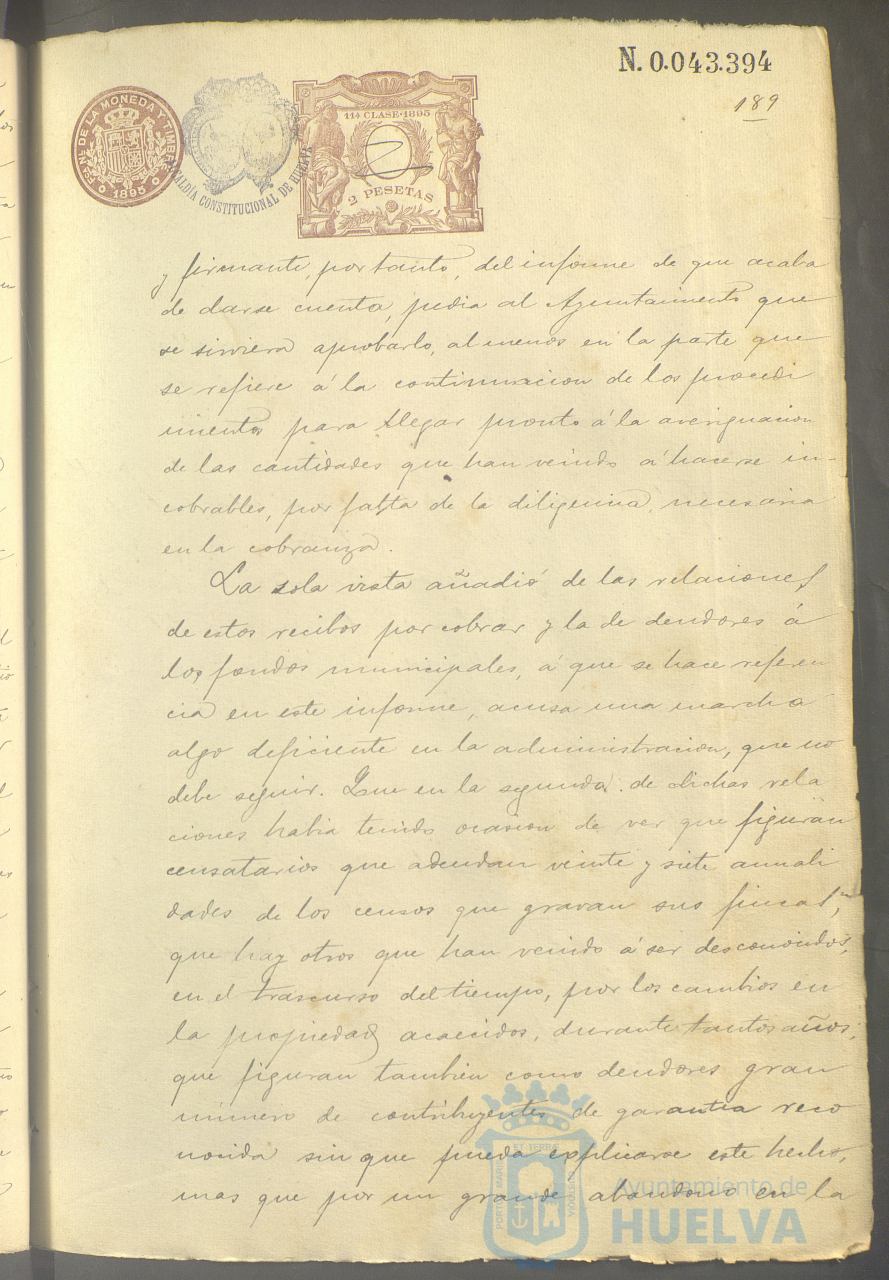 N. 0.043.394
189
FÁBRICA NAL DE LA MONEDA Y TIMBRE
1895
ALCALDIA CONSTITUCIONAL DE HUELVA
11ª CLASE·1895
2 PESETAS
y firmante, por tanto, del informe de que acaba
de darse cuenta, pedia al Ayuntamiento que
se sirviera aprobarlo, al menos en la parte que
se refiere á la continuacion de los procedi
mientos para llegar pronto á la averiguacion
de las cantidades que han venido á hacerse in-
cobrables, por falta de la diligencia, necesaria
en la cobranza.
La sola vista añadió de las relaciones
de estos recibos por cobrar y la de deudores á
los fondos municipales, á que se hace referen
cia en este informe, acusa una marcha
algo deficiente en la administracion, que no
debe seguir. Que en la segunda de dichas rela
ciones habia tenido ocasion de ver que figuran
censatarios que adeudan veinte y siete anuali
dades de los censos que gravan sus fincas,
que hay otros que han venido á ser desconocidos,
en el trascurso del tiempo, por los cambios en
la propiedad acaecidos, durante tantos años;
que figuran tambien como deudores gran
número de contribuyentes de garantia reco
nocida sin que pueda explicarse este hecho,
mas que por un grande abandono en la
PORTUS MARIS ET TERRÆ CUSTODIA
Ayuntamiento de
HUELVA